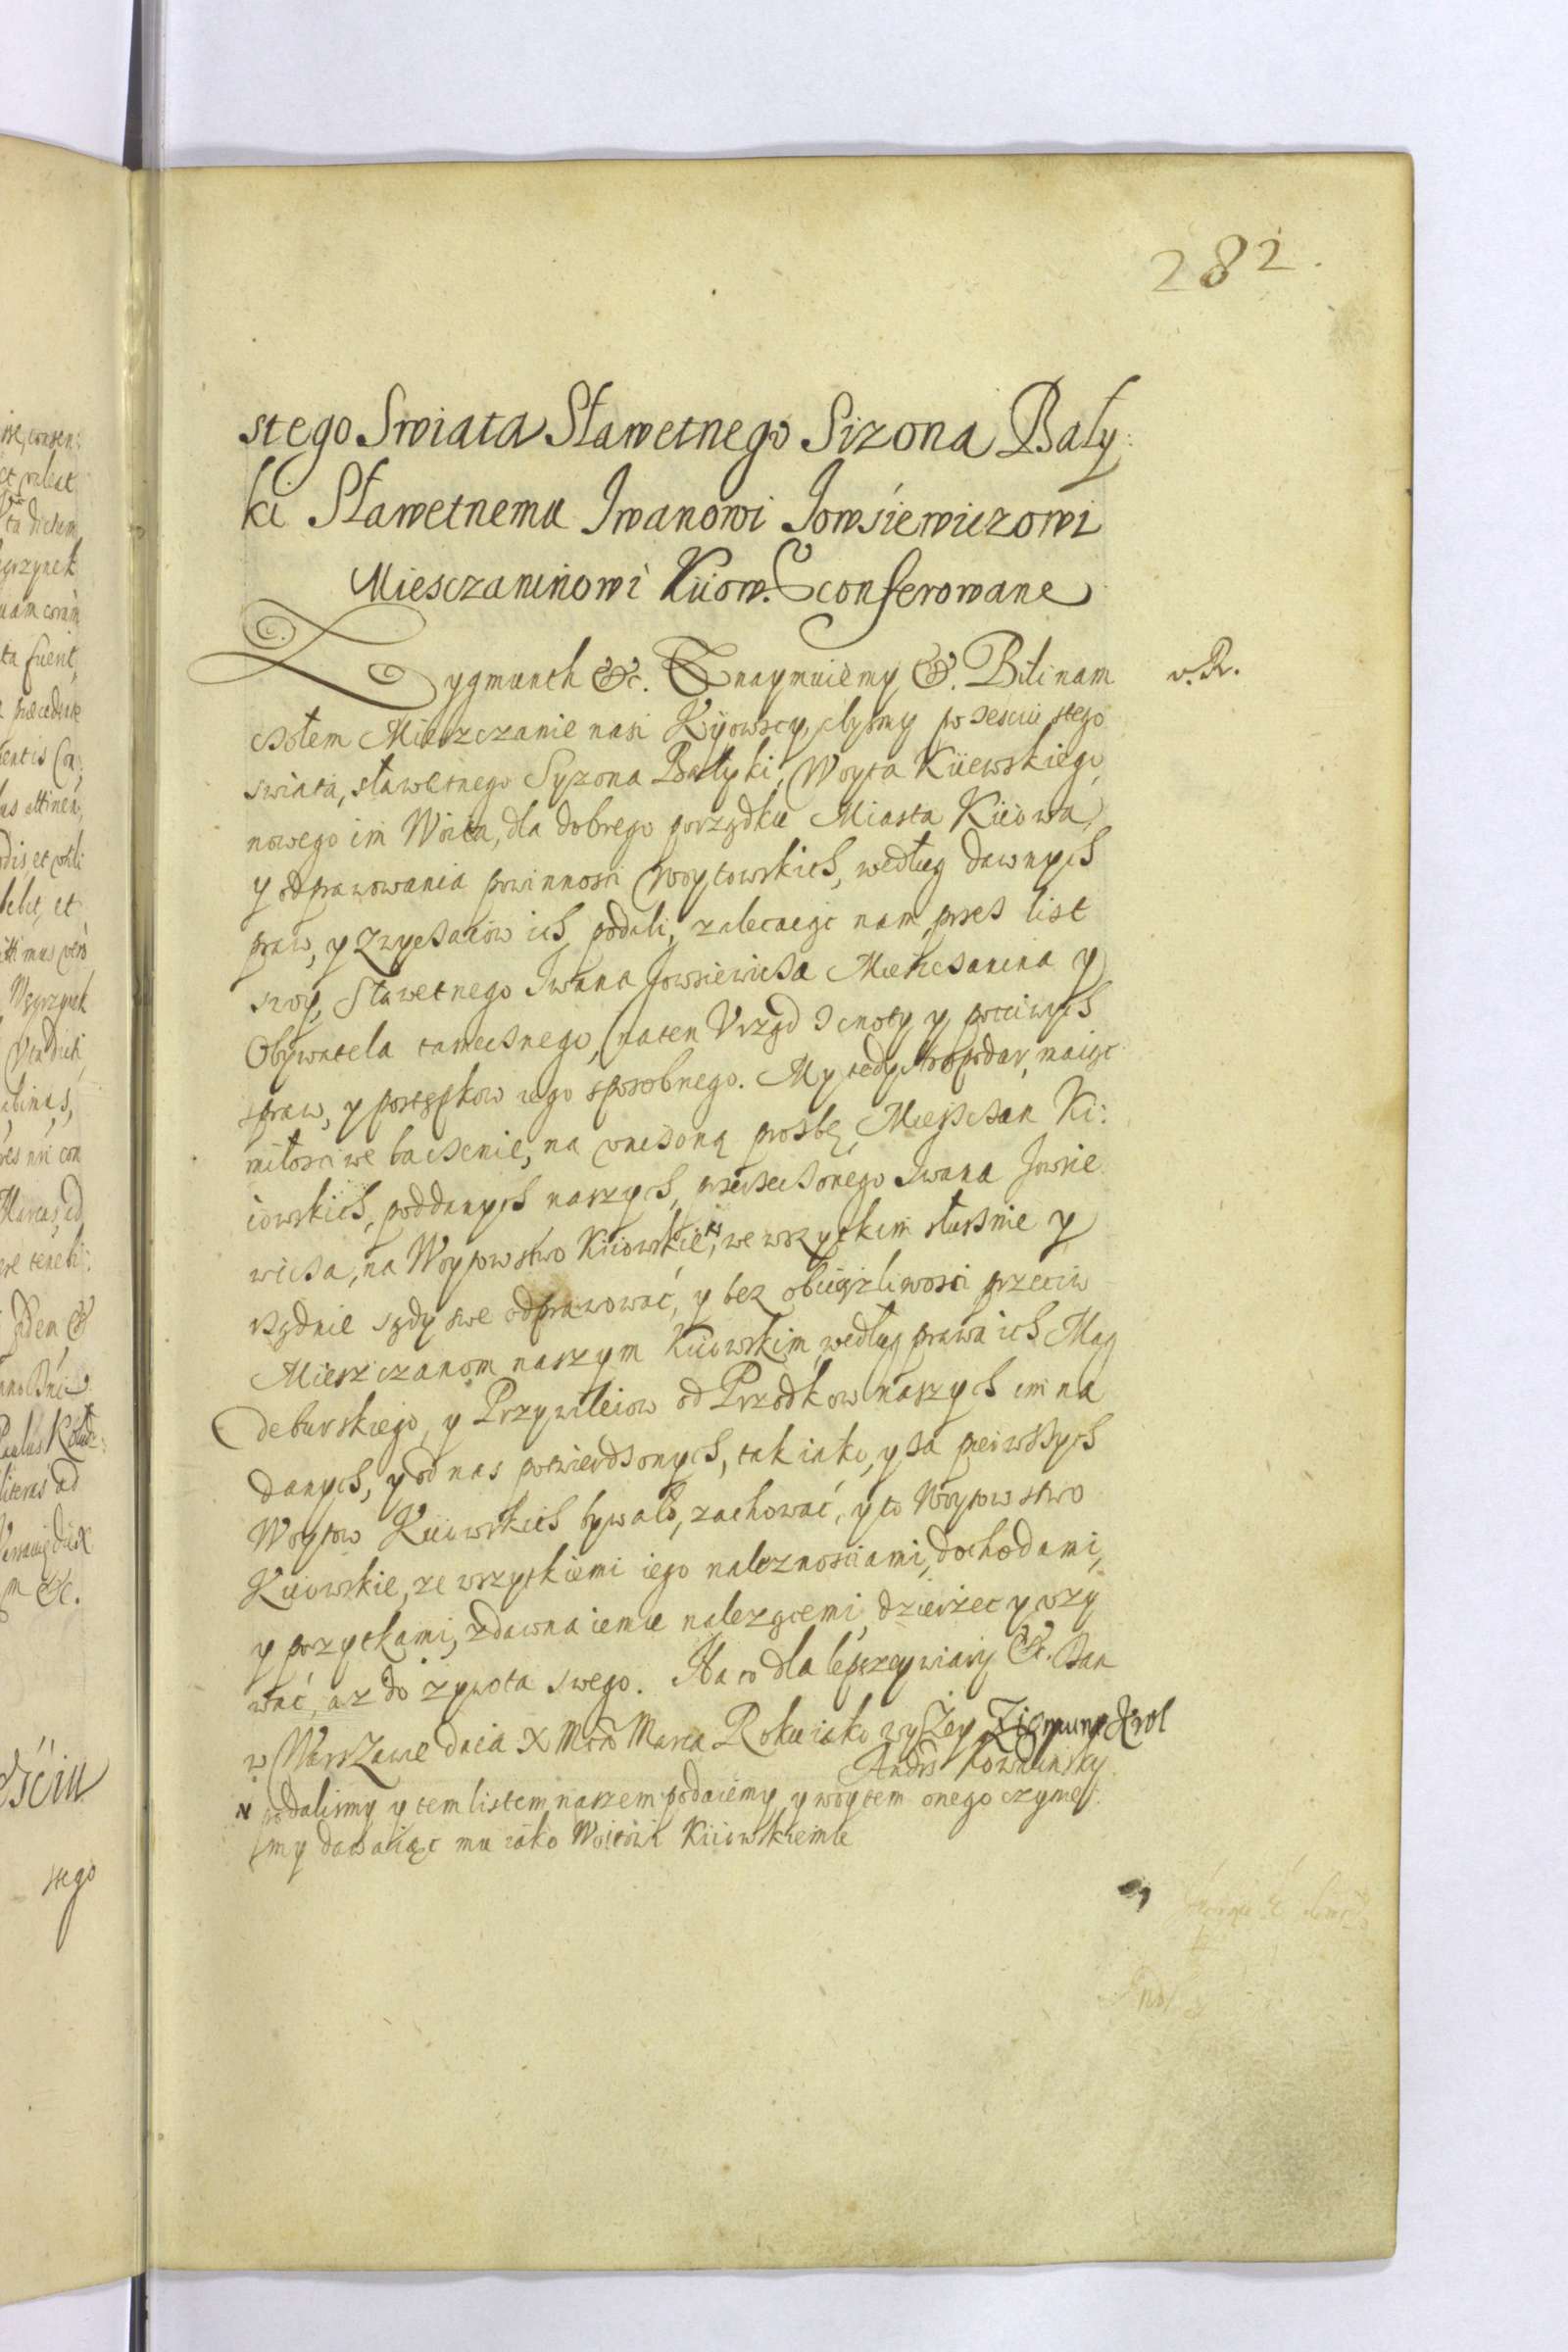 282.
stego Swiata Sławetnego Sizona Bały:
ki Sławetnemu Iwanowi Jowsiewiczowi
Miesczaninowi Kiiow. conferowane
Zygmunth &c. Oznaymuiemy &. Bili nam v. R.
czołem Miesczanie nasi Kyiowscy, abysmy po ześciu stego
swiata, sławetnego Syzona Bałyki, Woyta Kiiewskiego,
nowego im Woita, dla dobrego porządku Miasta Kiiowa,
y odprawowania powinnosci Woytowskich, według dawnych
praw, y Zwyczaiow ich podali, zalecaiąc nam przez list
swoy, Sławetnego Iwana Jowsiewicza Miesczanina y
Obywatela tamecznego, na ten Vrząd z cnoty y poczciwych
spraw, y postępkow iego sposobnego. My tedy Hospodar, maiąc
miłosciwe baczenie, na vniżoną prosbę Miesczan Ki:
iowskich, poddanych naszych, przerzeczonego Iwana Jowsie
wicza, na Woytowstwo Kiiowskie, N we wszytkim słusznie y
rządnie sądy swe odprawować, y bez obciążliwosci przeciw
Mieszczanom naszym Kiiowskim, według prawa ich Mag
deburskiego, y Przywileiow od Przodkow naszych im na
danych, y od nas potwierdzonych, tak iako, y za pierwszych
Woytow Kiiowskich bywało, zachować, y to Woytowstwo
Kiiowskie, ze wszytkiemi iego naleznosciami, dochodami,
y pozytkami, zdawna iemu nalezącemi, dzierżec y vzy
wać, az do żywota swego. Na co dla lepszey wiary &c. Dan
w Warszawie dnia X Mca Marca Roku iako wyszey Zigmunt Krol
Andrs
N podalismy y tem listem naszem podaiemy y woytem onego czyme
smy dawaiąc mu iako Woitowi Kiiowskiemu